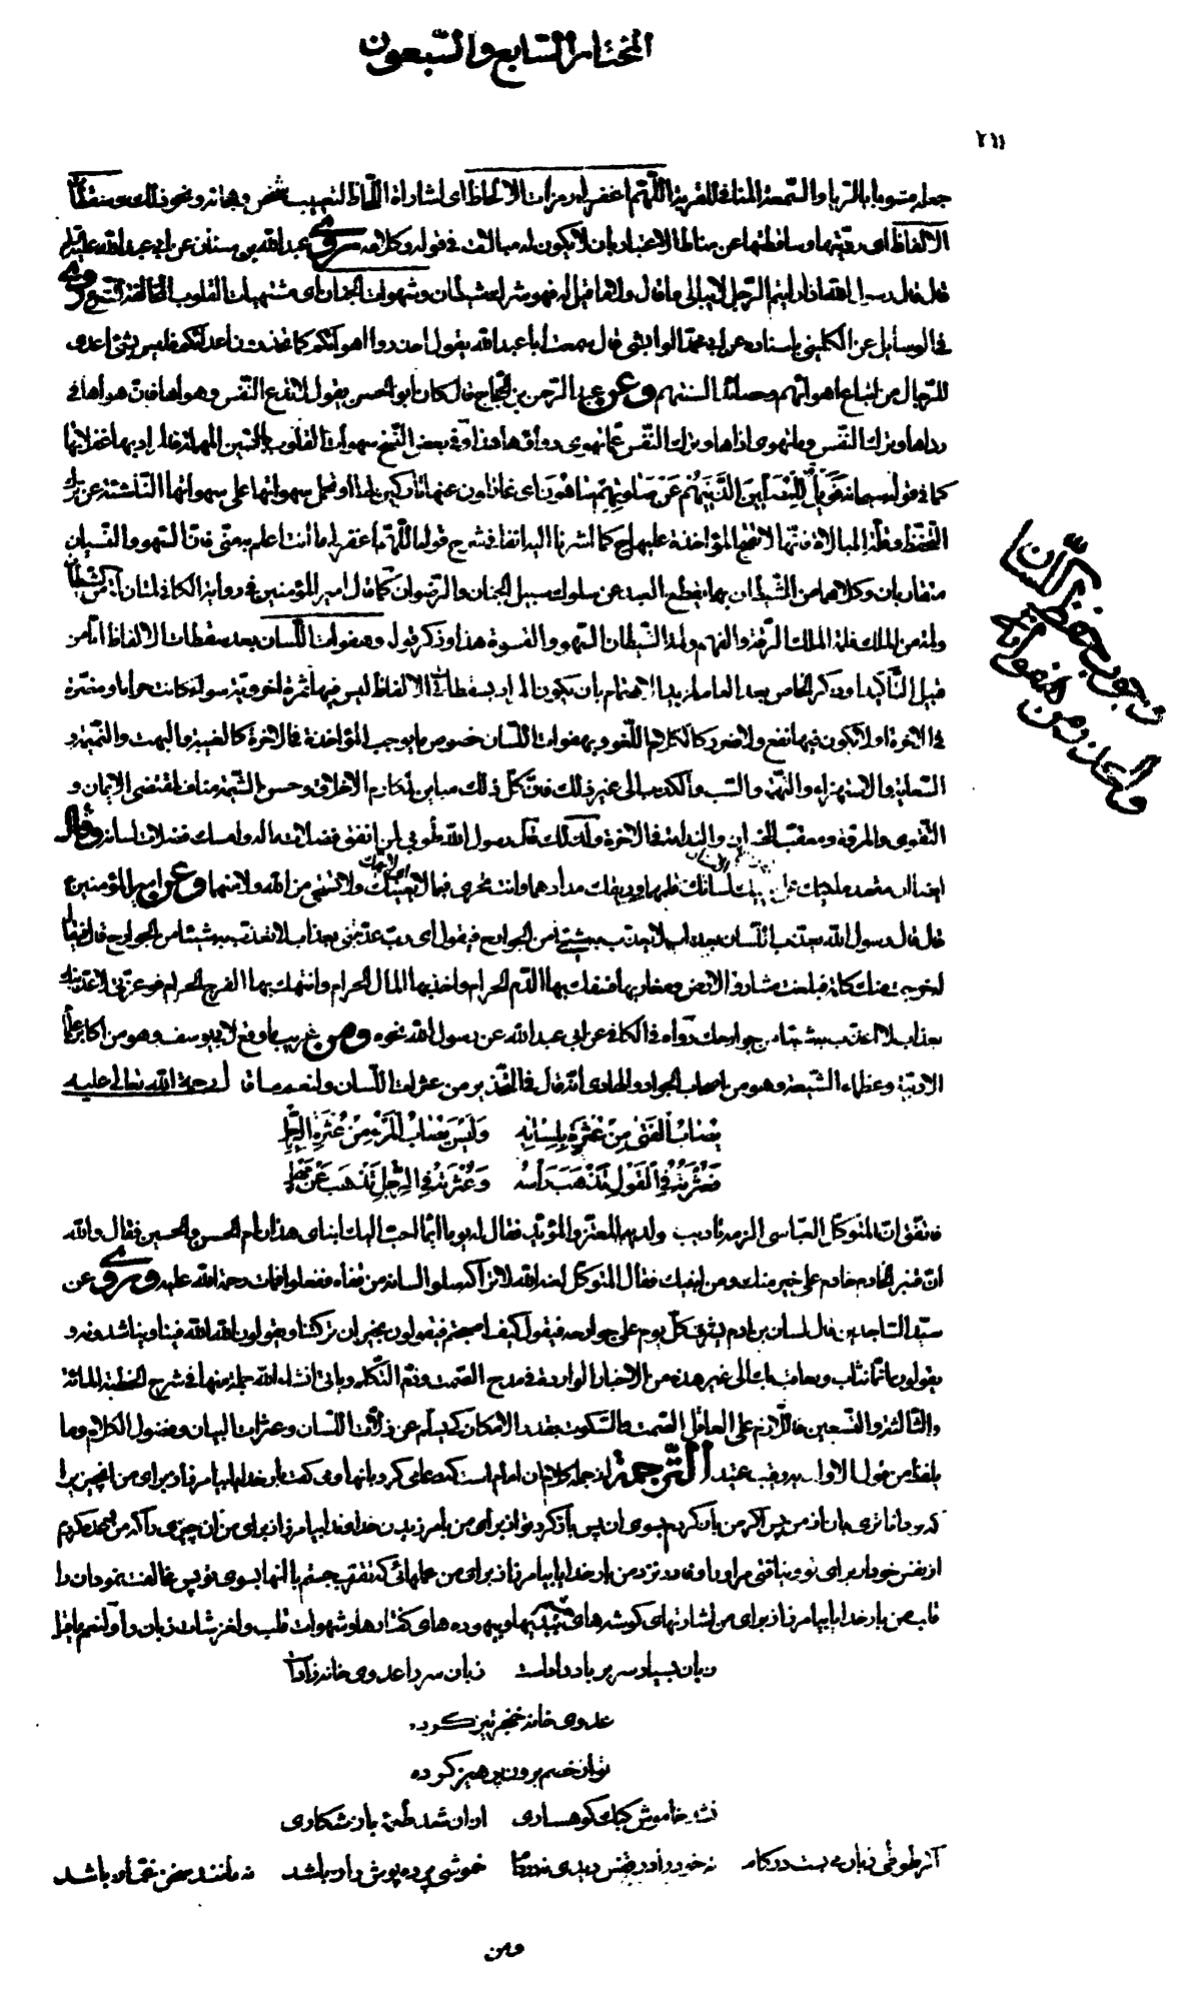 المختار السابع والسبعون
٢١١
جعله مشوبا بالريا والسمعة المنافي للقربة اللهم اغفر لي رمزات الالحاظ اى اشارات اللحاظ لتعييب شخص وهجائه ونحو ذلك وسقطات
الالفاظ اى رديّتها وساقطتها عن مناط الاعتبار بان لا يكون له مبالات في قوله وكلامه روى عبد الله بن سنان عن ابي عبد الله عليه
قال قال رسول الله اذا رايتم الرجل لا يبالى ما قال ولا ما قيل له فهو شرك شيطان وشهوات الجنان اى مشتهيات القلوب المخالفة للشرع روى
في الوسائل عن الكليني باسناده عن ابي محمد الوابشي قال سمعت ابا عبد الله يقول احذروا اهوائكم كما تحذرون اعدائكم فليس شئ اعدى
للرجال من اتباع اهوائهم وحصائد السنتهم وعن عبد الرحمن بن الحجاج قال كان ابو الحسن يقول لا تدع النفس وهواها فان هواها في
رداها وترك النفس وما تهوى اذاها وترك النفس عما تهوى دواؤها هذا وفي بعض النسخ سهوات القلوب بالسين المهملة فالمراد بها غفلاتها
كما في قوله سبحانه فويل للمصلين الذين هم عن صلوتهم ساهون اى غافلون عنها تاركين لها او تحمل سهواتها على سهواتها الناشئة عن ترك
التحفظ وقلة المبالاة فانها لا تقبح المؤاخذة عليها كما اشرنا اليه انفا في شرح قوله اللهم اغفر لي ما انت اعلم به منى فان السهو والنسيان
متقاربان وكلاهما من الشيطان بهما يقطع العبد عن سلوك سبيل الجنان والرضوان كما قال امير المؤمنين في رواية الكافي لمتان لمة من الشيطان
ولمة من الملك فلمة الملك الرقة والفهم ولمة الشيطان السهو والقسوة هذا وذكر قوله وهفوات اللسان بعد سقطات الالفاظ اما من
قبيل التأكيد او ذكر الخاص بعد العام لمزيد الاهتمام بان يكون المراد بسقطات الالفاظ ما ليس فيها ثمرة اخروية سواء كانت حراما ومضرة
في الاخرة او لا يكون فيها نفع ولا ضرر كالكلام اللغو وبهفوات اللسان خصوص ما يوجب المؤاخذة في الاخرة كالغيبة والبهت والنميمة و
السعاية والاستهزاء والتهمة والسب والكذب الى غير ذلك فان كل ذلك مباين لمكارم الاخلاق وحسن الشيمة مناف لمقتضى الايمان و
التقوى والمروة ومعقب الخذلان والندامة في الاخرة ولذلك قال رسول الله طوبى لمن انفق فضلات ماله وامسك فضلات لسانه وقال
ايضا ان مقعد ملكيك على ثنيتيك لسانك قلمهما وريقك مدادهما وانت تجرى فيما لا يعنيك ولا تستحيى من الله ولا منهما وعن امير المؤمنين
قال قال رسول الله يعذب اللسان بعذاب لا يعذب به شئ من الجوارح فيقول اى رب عذبتنى بعذاب لا تعذب به شيئا من الجوارح قال فيقال
له خرجت منك كلمة فبلغت مشارق الارض ومغاربها فسفك بها الدم الحرام واخذ بها المال الحرام وانتهك بها الفرج الحرام فوعزتى لاعذبنك
بعذاب لا اعذب به شيئا من جوارحك رواه في الكافي عن ابي عبد الله عن رسول الله نحوه ومن غريب ما وقع لابي يوسف وهو من اكابر علماء
الادبية وعظماء الشيعة وهو من اصحاب الجواد والهادى انه قال في التحذير من عثرات اللسان ولنعم ما قال رحمة الله تعالى عليه
يصاب الفتى من عثرة بلسانه وليس يصاب المرء من عثرة الرجل
فعثرته في القول تذهب راسه وعثرته في الرجل تذهب عن مهل
فاتفق ان المتوكل العباسى الزمه تاديب ولديه المعتز والمؤيد فقال له يوما ايما احب اليك ابناى هذان ام الحسن والحسين فقال والله
ان قنبر الخادم خادم على خير منك ومن ابنيك فقال المتوكل لعنه الله لاتراكه سلوا لسانه من قفاه ففعلوا فمات رحمة الله عليه وروى عن
سيد الساجدين قال لسان بن ادم يشرف كل يوم على جوارحه فيقول كيف اصبحتم فيقولون بخير ان تركتنا ويقولون الله الله فينا ويناشدونه و
يقولون انما نثاب ونعاقب بك الى غير هذه من الاخبار الواردة في مدح الصمت وذم التكلم ويأتى انشاء الله جملة منها في شرح الخطبة المائة
والثالثة والتسعين فاللازم على العاقل الصمت والسكوت بقدر الامكان كى يسلم عن زلات اللسان وعثرات البيان وفضول الكلام وما
يلفظ من قول الا لديه رقيب عتيد الترجمة از جمله كلام ان امام است كه دعا مى كرد بانها ومى گفت بار خدايا بيامرز از براى من انچيزيرا
كه تو داناترى بان از من پس اگر من باز گردم بسوى ان پس باز گرد تو از براى من بامرزيدن خداوندا بيامرز از براى من ان چيزى را كه من وعده كردم
از نفس خود از براى تو ونيافتى مر او را وفا در نزد من بار خدايا بيامرز از براى من عملهائى كه تقرب جستم بآنها بسوى تو پس مخالفت نمود ان را
قلب من بار خدايا بيامرز از براى من اشارتهاى گوشه‌هاى چشم وبيهوده هاى گفتارها وشهوات قلب ولغزشات زبان را ولنعم ما قال
زبان بسيار سر بر باد داده است زبان سر را عدوى خانه زاد است
عدوى خانه خنجر تيز كرده
تو از خصم برون پرهيز كرده
نشد خاموش كبك كوهسارى از ان شد طعمهٔ باز شكارى
اگر طوطى زبان مى بست در كام نه خود را در قفس ديدى نه در دام خموشى پرده پوش راز باشد نه مانند سخن غماز باشد
ومن
وجوب حفظ اللسان
والحذر من هفواته